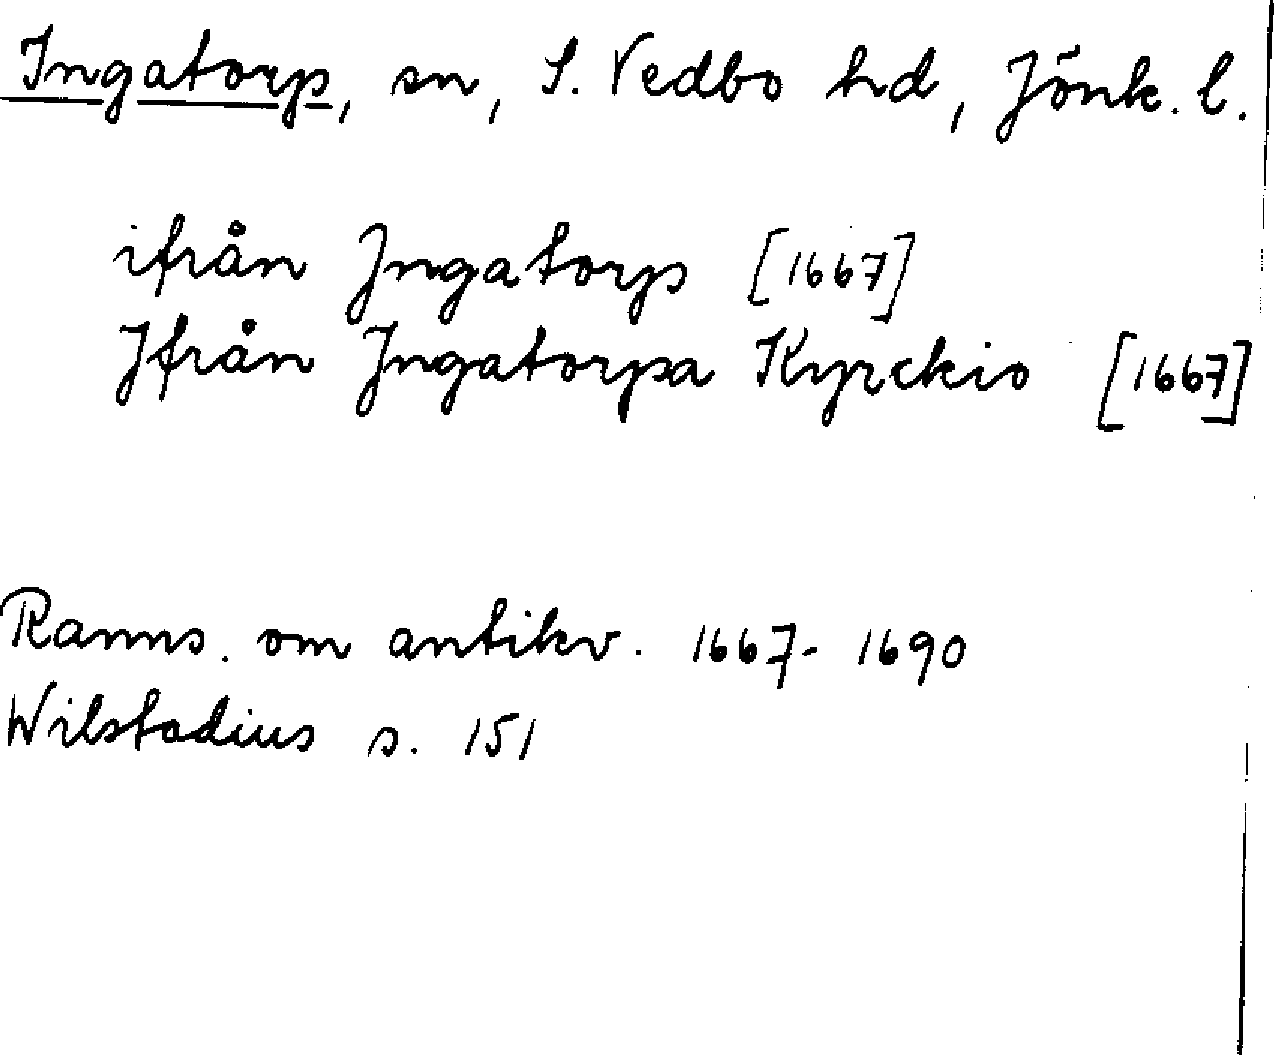 Ingatorp, sn, S. Vedbo hd, Jönk. l.
ifrån Jngatorp [1667]
Jfrån Jngatorpa Kyrckio [1667]
Ranns. om antikv. 1667-1690
Wilstadius s. 151